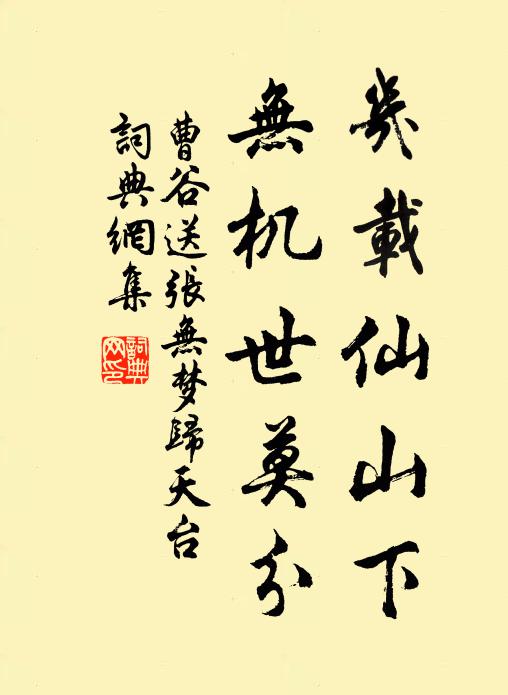 幾載仙山下
無机世莫分
曹谷送張無梦歸天台
詞典網集
詞典網印